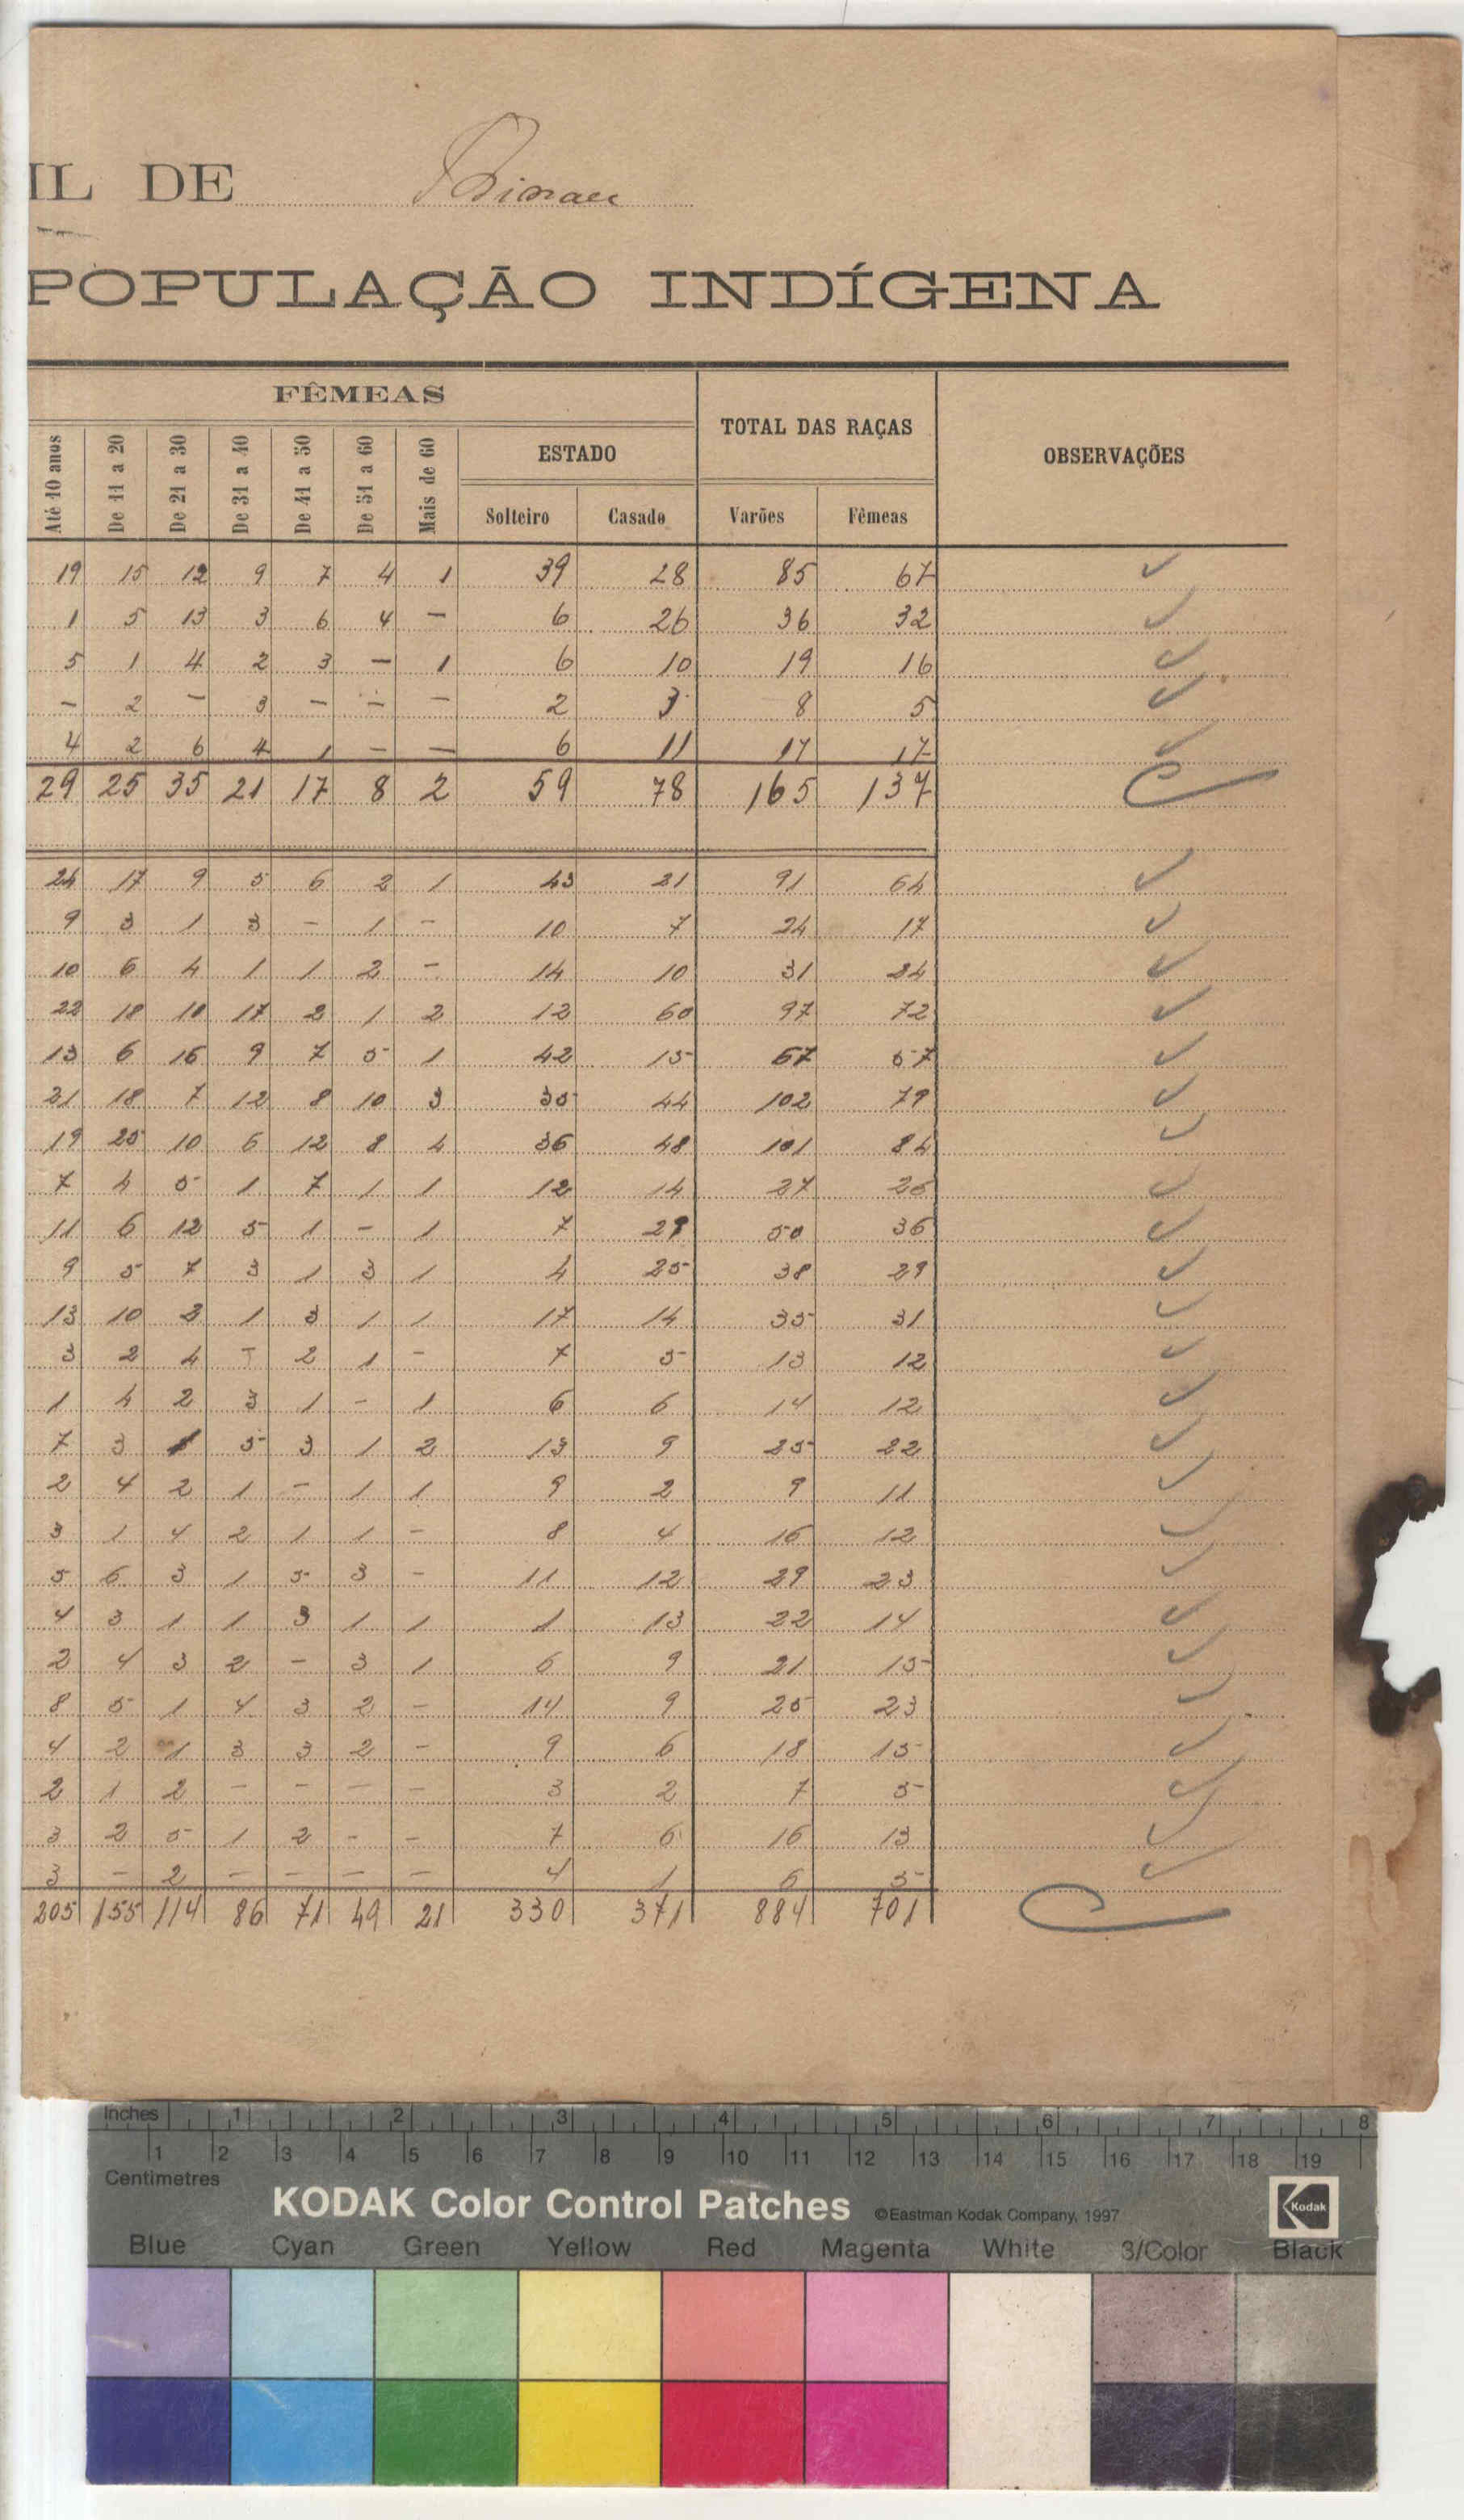 IL DE
POPULAÇÃO INDÍGENA
FÊMEAS TOTAL DAS RAÇAS OBSERVAÇÕES
Até 10 anos De 11 a 20 De 21 a 30 De 31 a 40 De 41 a 50 De 51 a 60 Mais de 60 ESTADO
Solteiro Casado Varões Fêmeas
19 15 12 9 7 4 1 39 28 85 67 ✓
1 5 13 3 6 4 — 6 26 36 32 ✓
5 1 4 2 3 — 1 6 10 19 16 ✓
— 2 — 3 — — — 2 3 8 5 ✓
4 2 6 4 1 — — 6 11 17 17 ✓
29 25 35 21 17 8 2 59 78 165 137
24 17 9 5 6 2 1 43 21 91 64 ✓
9 3 1 3 — 1 — 10 7 24 17 ✓
10 6 4 1 1 2 — 14 10 31 24 ✓
22 18 10 17 2 1 2 12 60 97 72 ✓
13 6 16 9 7 5 1 42 15 67 57 ✓
21 18 7 12 8 10 3 35 44 102 79 ✓
19 25 10 6 12 8 4 36 48 101 84 ✓
7 4 5 1 7 1 1 12 14 27 26 ✓
11 6 12 5 1 — 1 7 29 50 36 ✓
9 5 7 3 1 3 1 4 25 38 29 ✓
13 10 2 1 3 1 1 17 14 35 31 ✓
3 2 4 — 2 1 — 7 5 13 12 ✓
1 4 2 3 1 — 1 6 6 14 12 ✓
7 3 1 5 3 1 2 13 9 25 22 ✓
2 4 2 1 — 1 1 9 2 9 11 ✓
3 1 4 2 1 1 — 8 4 16 12 ✓
5 6 3 1 5 3 — 11 12 29 23 ✓
4 3 1 1 3 1 1 1 13 22 14 ✓
2 4 3 2 — 3 1 6 9 21 15 ✓
8 5 1 4 3 2 — 14 9 25 23 ✓
4 2 1 3 3 2 — 9 6 18 15 ✓
2 1 2 — — — — 3 2 7 5 ✓
3 2 5 1 2 — — 7 6 16 13 ✓
3 — 2 — — — — 4 1 6 5 ✓
205 155 114 86 71 49 21 330 371 884 701
Inches 1 2 3 4 5 6 7 8
1 2 3 4 5 6 7 8 9 10 11 12 13 14 15 16 17 18 19
Centimetres
KODAK Color Control Patches ©Eastman Kodak Company, 1997 Kodak
Blue Cyan Green Yellow Red Magenta White 3/Color Black